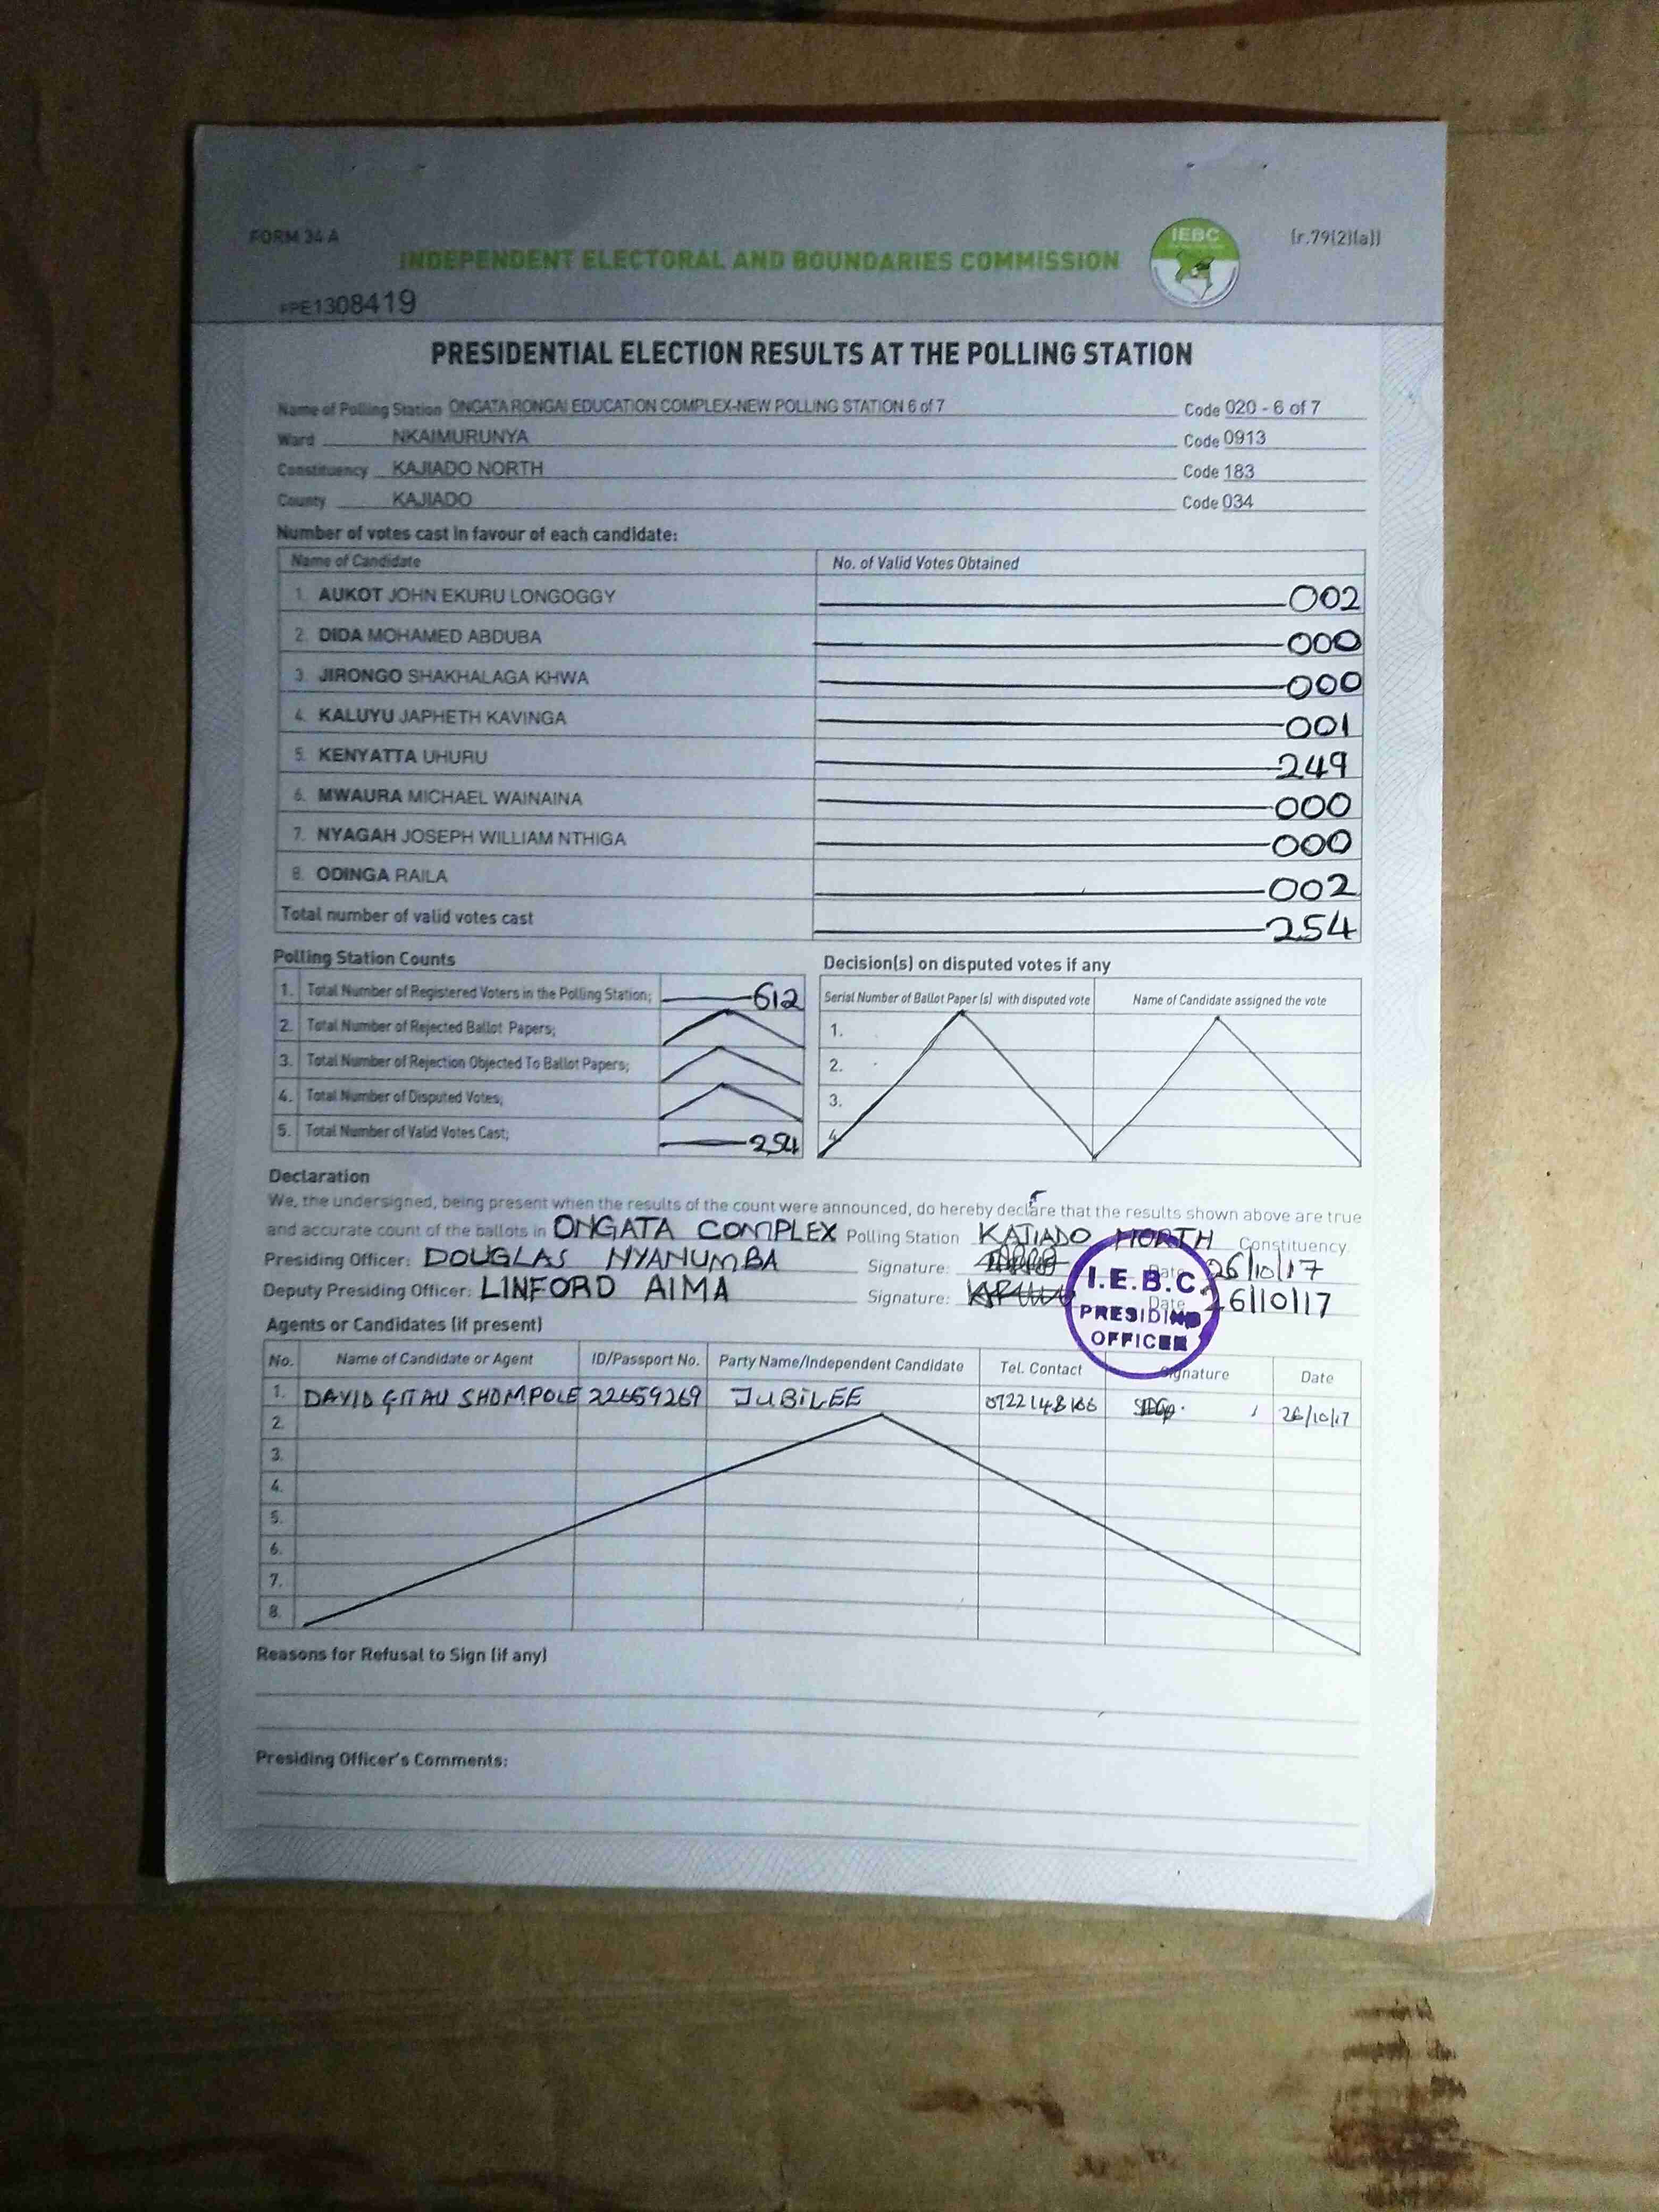 FORM 34 A
(r.79(2)(a))
IEBC
INDEPENDENT ELECTORAL AND BOUNDARIES COMMISSION
PPE1308419
PRESIDENTIAL ELECTION RESULTS AT THE POLLING STATION
Name of Polling Station ONGATA RONGAI EDUCATION COMPLEX-NEW POLLING STATION 6 of 7 Code 020 - 6 of 7
Ward NKAIMURUNYA Code 0913
Constituency KAJIADO NORTH Code 183
County KAJIADO Code 034
Number of votes cast in favour of each candidate:
Name of Candidate No. of Valid Votes Obtained
1. AUKOT JOHN EKURU LONGOGGY 002
2. DIDA MOHAMED ABDUBA 000
3. JIRONGO SHAKHALAGA KHWA 000
4. KALUYU JAPHETH KAVINGA 001
5. KENYATTA UHURU 249
6. MWAURA MICHAEL WAINAINA 000
7. NYAGAH JOSEPH WILLIAM NTHIGA 000
8. ODINGA RAILA 002
Total number of valid votes cast 254
Polling Station Counts
1. Total Number of Registered Voters in the Polling Station; 612
2. Total Number of Rejected Ballot Papers;
3. Total Number of Rejection Objected To Ballot Papers;
4. Total Number of Disputed Votes;
5. Total Number of Valid Votes Cast; 254
Decision(s) on disputed votes if any
Serial Number of Ballot Paper (s) with disputed vote Name of Candidate assigned the vote
1.
2.
3.
4.
Declaration
We, the undersigned, being present when the results of the count were announced, do hereby declare that the results shown above are true
and accurate count of the ballots in ONGATA COMPLEX Polling Station KAJIADO NORTH Constituency
Presiding Officer: DOUGLAS NYANUMBA Signature: Date 26/10/17
Deputy Presiding Officer: LINFORD AIMA Signature: Date 26/10/17
I.E.B.C.
PRESIDING
OFFICER
Agents or Candidates (if present)
No. Name of Candidate or Agent ID/Passport No. Party Name/Independent Candidate Tel. Contact Signature Date
1. DAVID GITAU SHOMPOLE 22659269 JUBILEE 26/10/17
2.
3.
4.
5.
6.
7.
8.
Reasons for Refusal to Sign (if any)
Presiding Officer's Comments: